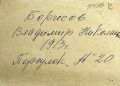 Борисов
Владимир Николаев
1913г.
Переулок, № 20